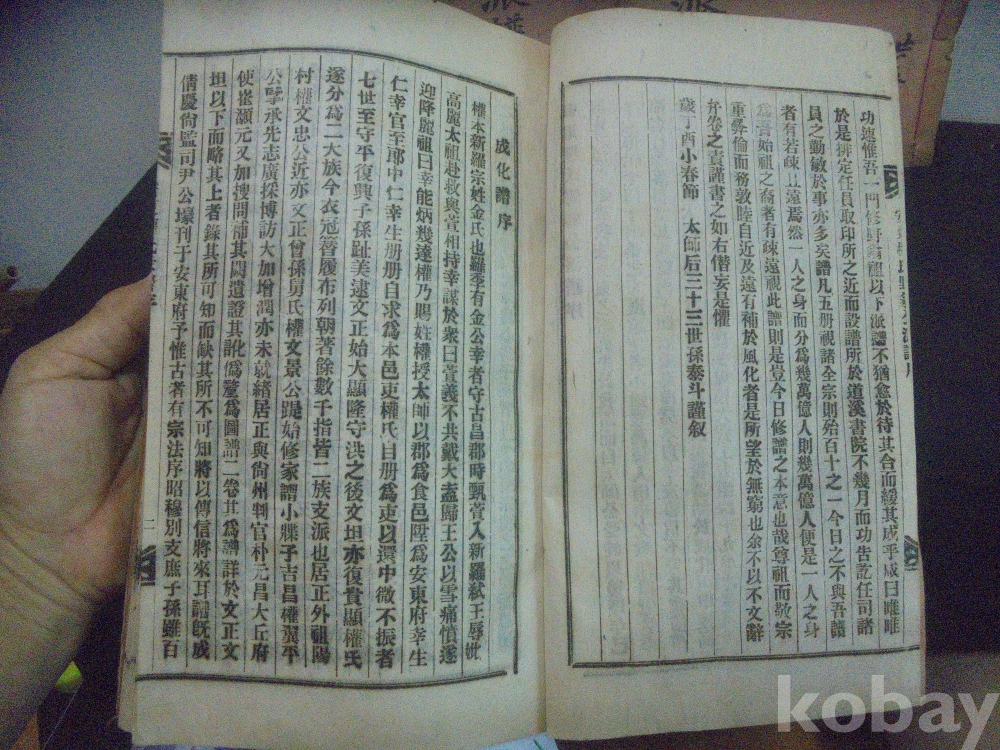 功速惟吾一門修
祖以下派譜不猶愈於待其合而緩其成乎咸曰唯唯
於是排定任員取印所之近而設譜所於道溪書院不幾月而功告訖任司諸
員之勤敏於事亦多矣譜凡五册視諸全宗則殆百十之一今日之不與吾譜
者有若疎且遠焉然一人之身而分爲幾萬億人則幾萬億人便是一人之身
爲吾始祖之裔者有疎遠視此譜則是豈今日修譜之本意也哉尊祖而敬宗
重彜倫而務敦睦自近及遠有補於風化者是所望於無窮也余不以不文辭
弁卷之責謹書之如右僭妄是懼
歲丁酉小春節 太師后三十三世孫泰斗謹叙
成化譜序
權本新羅宗姓金氏也羅季有金公幸者守古昌郡時甄萱入新羅弑王辱妣
高麗太祖赴救與萱相持幸謀於衆曰萱義不共戴天盍歸王公以雪痛憤遂
迎降麗祖曰幸能炳幾達權乃賜姓權授太師以郡爲食邑陞爲安東府幸生
仁幸官至郎中仁幸生册册自求爲本邑吏權氏自册爲吏以還中微不振者
七世至守平復興子孫趾美逮文正始大顯隆守洪之後文坦亦復貴顯權氏
遂分爲二大族今衣冠簪履布列朝著餘數千指皆二族支派也居正外祖陽
村權文忠公近亦文正曾孫舅氏權文景公踶始修家譜小牒子吉昌權翼平
公擥承先志廣採博訪大加增潤亦未就緖居正與尙州判官朴元昌大丘府
使崔灝元又加搜問補其闕遺證其訛僞釐爲圖譜二卷其爲譜詳於文正文
坦以下而略其上者錄其所可知而缺其所不可知將以傳信將來耳譜旣成
倩慶尙監司尹公壕刊于安東府予惟古者有宗法序昭穆別支庶子孫雖百
二
kobay